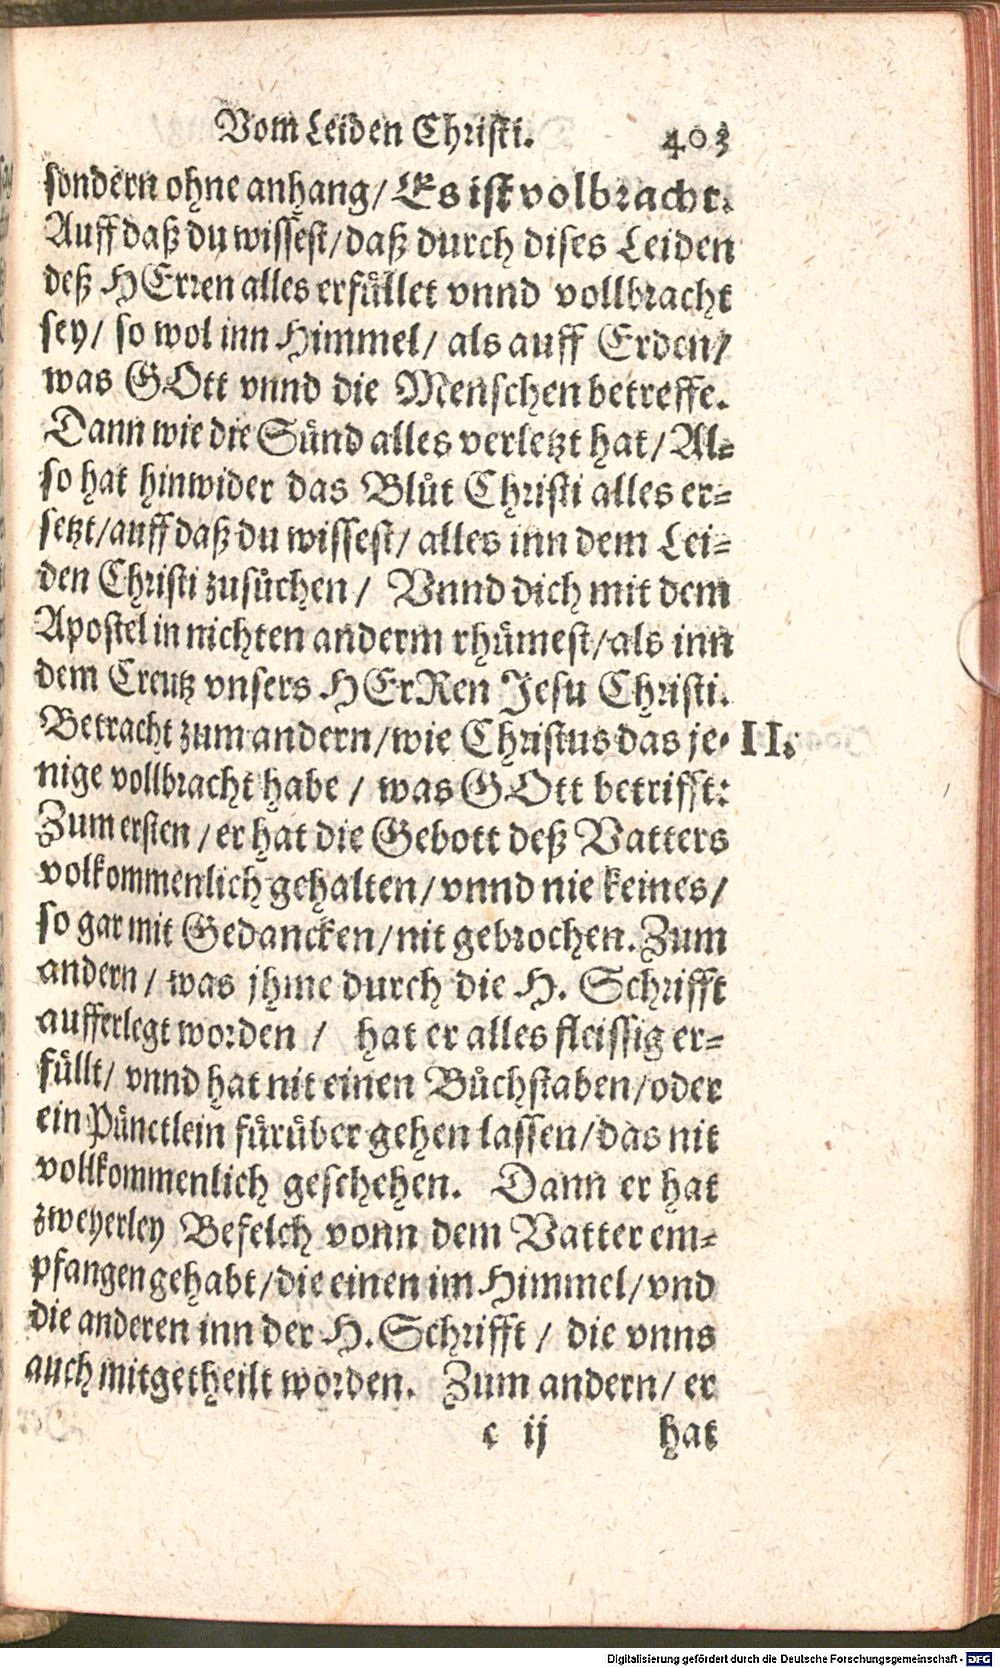 Vom Leiden Christi. 403
sondern ohne anhang/ Es ist volbracht.
Auff daß du wissest/daß durch dises Leiden
deß HErren alles erfüllet vnnd vollbracht
sey/ so wol inn Himmel/ als auff Erden/
was GOtt vnnd die Menschen betreffe.
Dann wie die Sünd alles verletzt hat/ Al=
so hat hinwider das Blůt Christi alles er=
setzt/auff daß du wissest/ alles inn dem Lei=
den Christi zusůchen/ Vnnd dich mit dem
Apostel in nichten anderm rhümest/als inn
dem Creutz vnsers HErRen Jesu Christi.
Betracht zum andern/wie Christus das je= II.
nige vollbracht habe/ was GOtt betrifft:
Zum ersten/er hat die Gebott deß Vatters
volkommenlich gehalten/vnnd nie keines/
so gar mit Gedancken/nit gebrochen. Zum
andern/ was jhme durch die H. Schrifft
aufferlegt worden/ hat er alles fleissig er=
füllt/ vnnd hat nit einen Bůchstaben/oder
ein Pünctlein fürüber gehen lassen/das nit
vollkommenlich geschehen. Dann er hat
zweyerley Befelch vonn dem Vatter em=
pfangen gehabt/die einen im Himmel/vnd
die anderen inn der H. Schrifft/ die vnns
auch mitgetheilt worden. Zum andern/ er
c ij hat
Digitalisierung gefördert durch die Deutsche Forschungsgemeinschaft - DFG